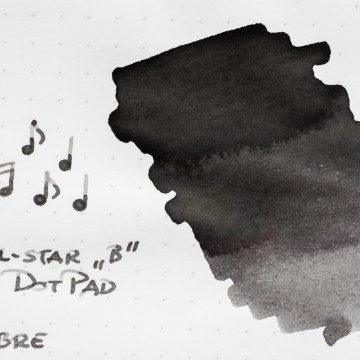 L-STAR „B"
DOT PAD
BRE